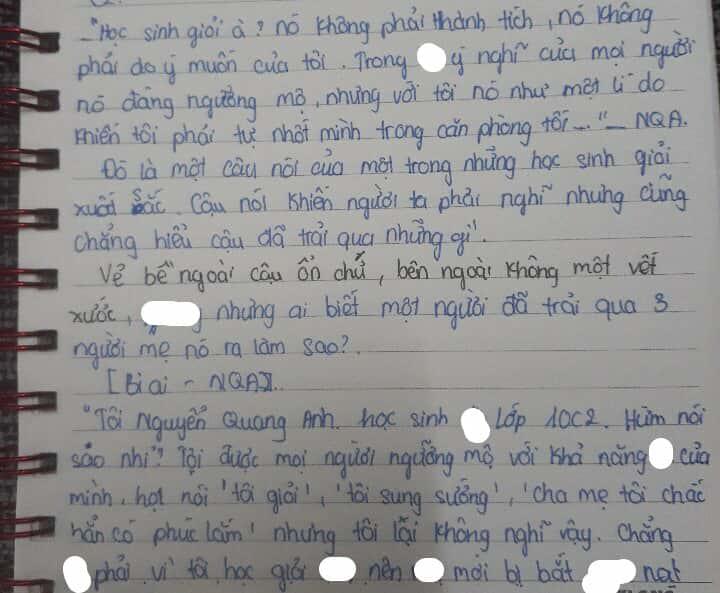 "Học sinh giỏi à? nó không phải thành tích, nó không
phải do ý muốn của tôi. Trong ý nghĩ của mọi người
nó đáng ngưỡng mộ, nhưng với tôi nó như một lí do
khiến tôi phải tự nhốt mình trong căn phòng tối..." _ NQA.
Đó là một câu nói của một trong những học sinh giỏi
xuất sắc. Câu nói khiến người ta phải nghĩ nhưng cũng
chẳng hiểu cậu đã trải qua những gì.
Vẻ bề ngoài cậu ổn chứ, bên ngoài không một vết
xước, nhưng ai biết một người đã trải qua 3
người mẹ nó ra làm sao?.
[Bi ai - NQA]..
"Tôi Nguyễn Quang Anh. học sinh Lớp 10C2. Hừm nói
sao nhỉ? Tôi được mọi người ngưỡng mộ với khả năng của
mình. họ nói 'tôi giỏi', 'tôi sung sướng', 'cha mẹ tôi chắc
hẳn có phúc lắm' nhưng tôi lại không nghĩ vậy. Chẳng
phải vì tôi học giỏi nên mới bị bắt nạt